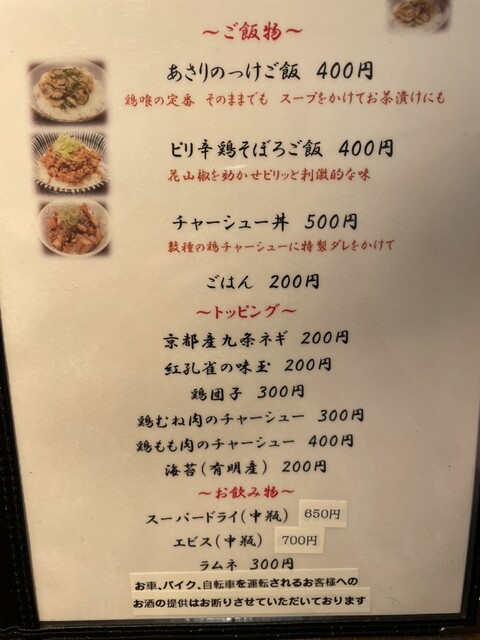 ～ご飯物～
あさりのっけご飯 400円
鶏喰の定番 そのままでも スープをかけてお茶漬けにも
ピリ辛鶏そぼろご飯 400円
花山椒を効かせピリッと刺激的な味
チャーシュー丼 500円
数種の鶏チャーシューに特製ダレをかけて
ごはん 200円
～トッピング～
京都産九条ネギ 200円
紅孔雀の味玉 200円
鶏団子 300円
鶏むね肉のチャーシュー 300円
鶏もも肉のチャーシュー 400円
海苔(有明産) 200円
～お飲み物～
スーパードライ(中瓶) 650円
エビス(中瓶) 700円
ラムネ 300円
お車、バイク、自転車を運転されるお客様への
お酒の提供はお断りさせていただいております